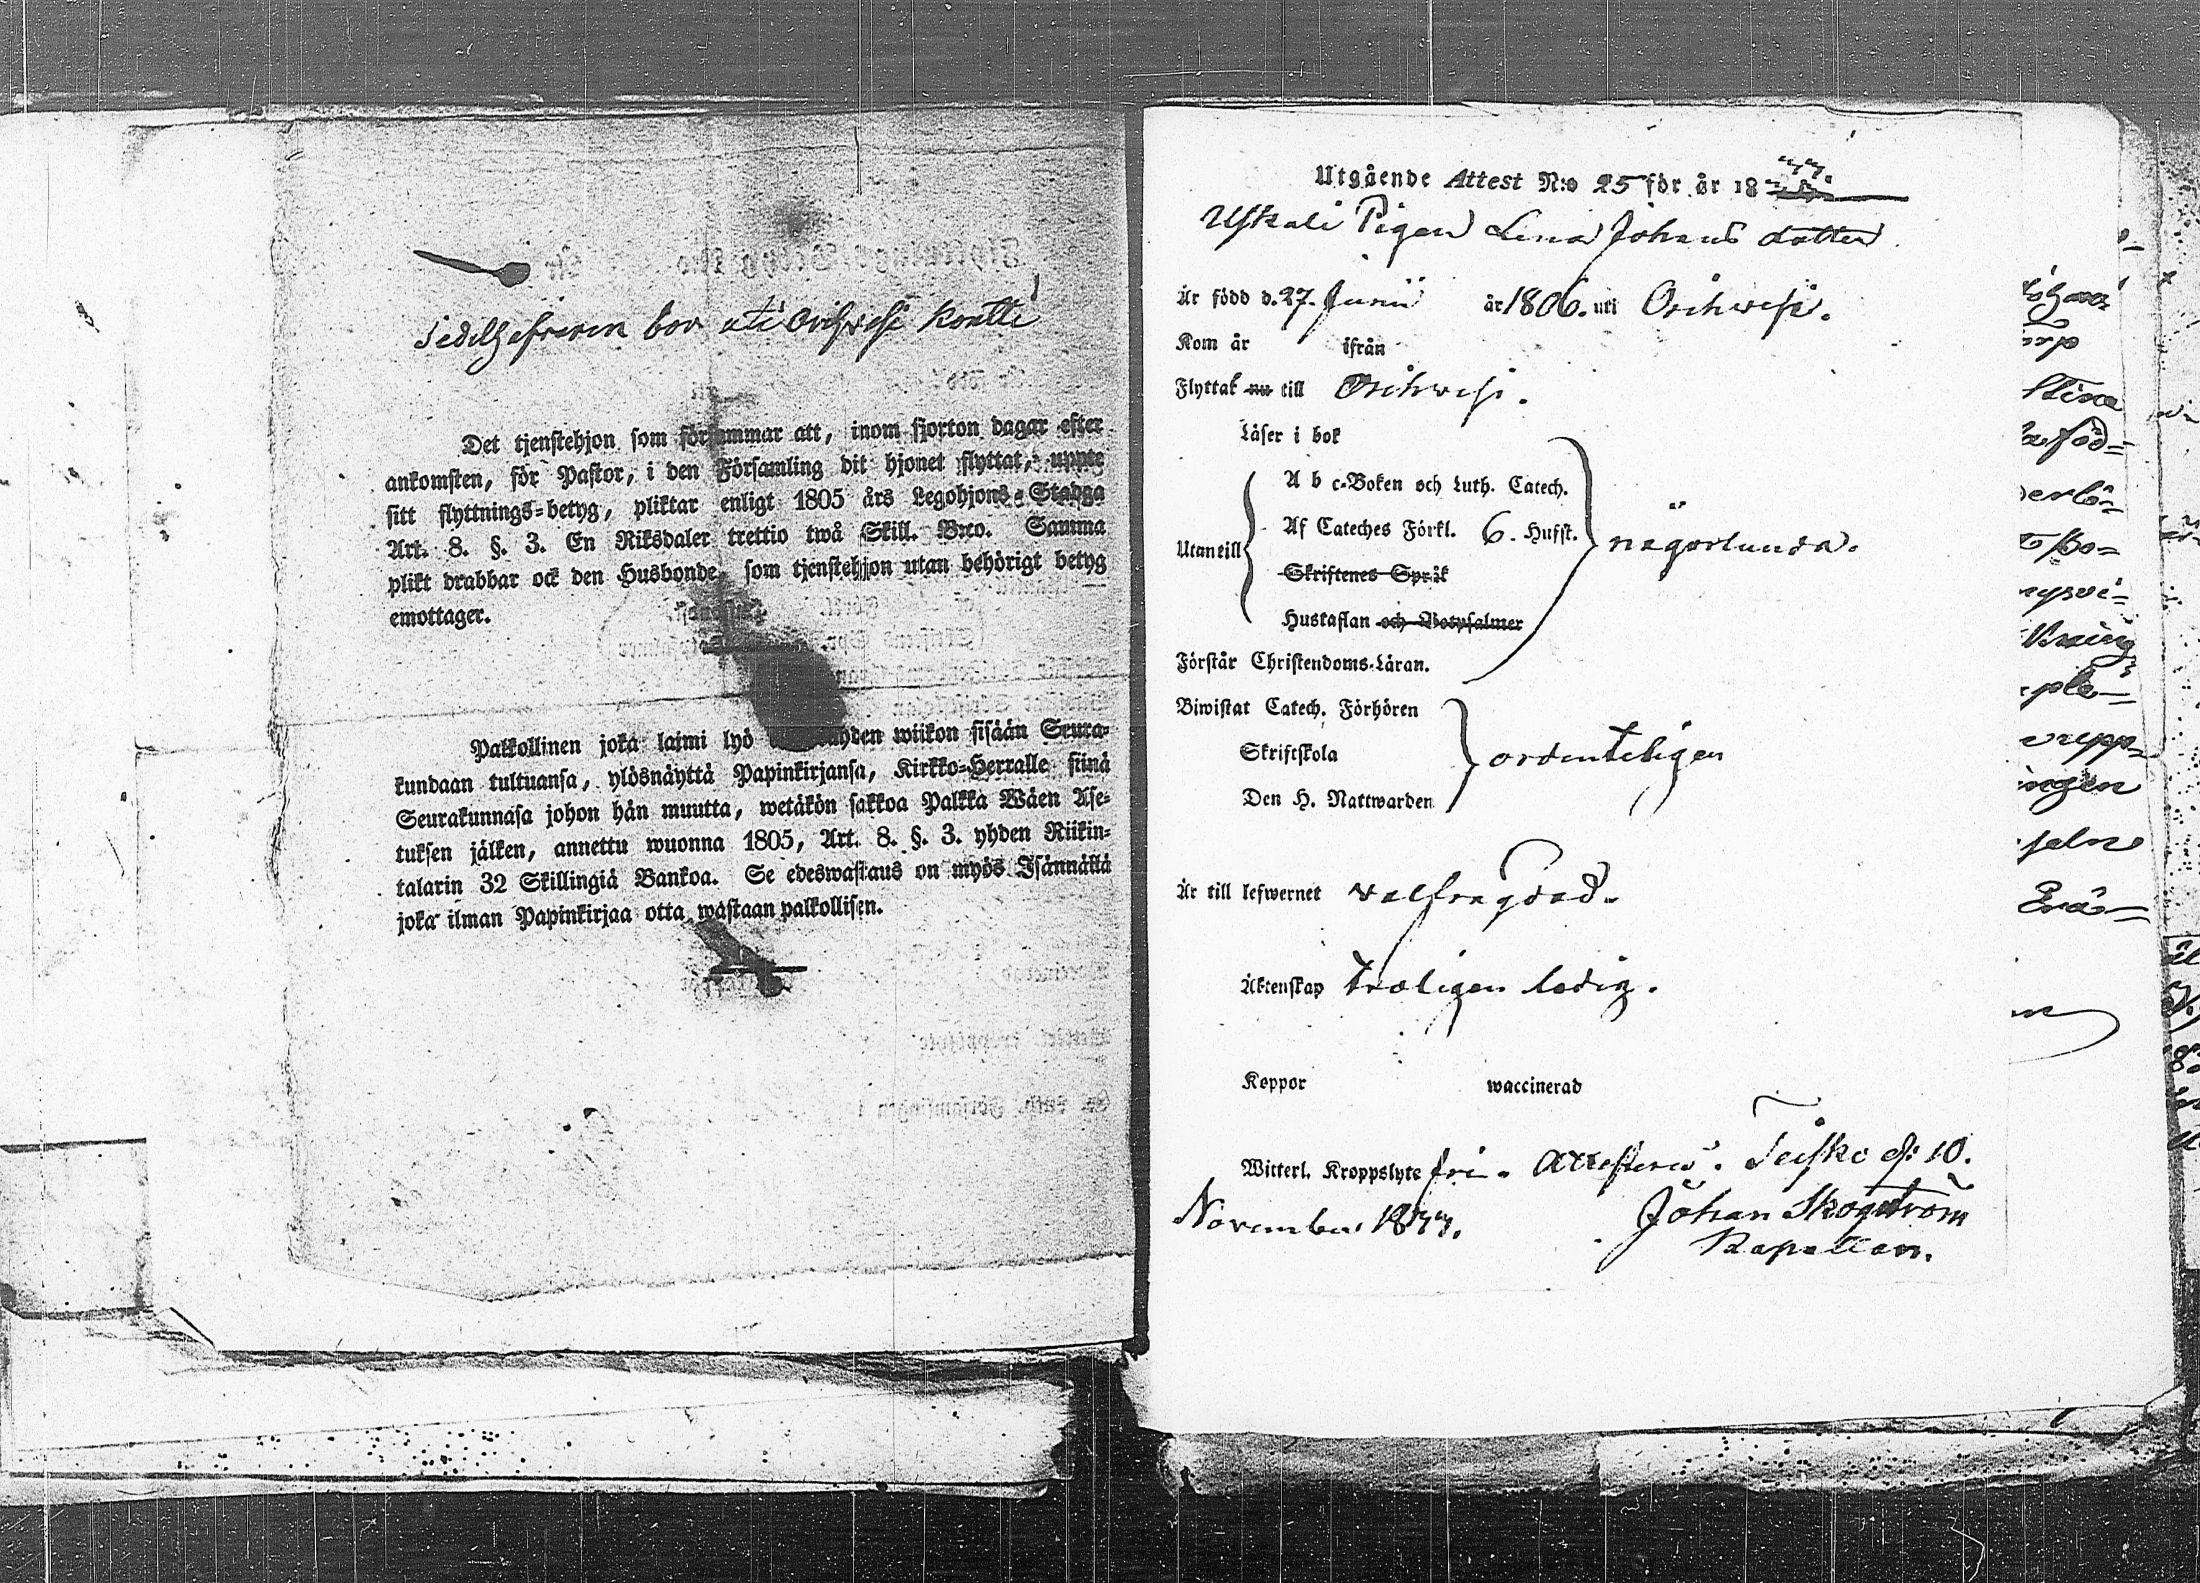 Sedelhafveren bor uti Orihvesi Kontti
Det tjenstehjon som försummar att, inom fjorton dagar efter
ankomsten, för Pastor, i den Församling dit hjonet flyttat, uppte
sitt flyttnings-betyg, pliktar enligt 1805 års Legohjons-Stadga
Art. 8. §. 3. En Riksdaler trettio twå Skill. B:co. Samma
plikt drabbar ock den Husbonde, som tjenstehjon utan behörigt betyg
emottager.
Palkollinen joka laimi lyö wiikon sisään Seura-
kundaan tultuansa, ylösnäyttä Papinkirjansa, Kirkko-Herralle siinä
Seurakunnasa johon hän muutta, wetäkön sakkoa Palkka Wäen Ase-
tuksen jälken, annettu wuonna 1805, Art. 8. §. 3. yhden Riikin-
talarin 32 Skillingiä Bankoa. Se edeswastaus on myös Isännällä
joka ilman Papinkirjaa otta wastaan palkollisen.
Utgående Attest N:o 25 för år 1844.
Uskali Pigan Lena Johans dotter
Är född d. 27. Junii år 1806. uti Orihvesi.
Kom år ifrån
Flyttat nu till Orihvesi.
Läser i bok
A b c-Boken och Luth. Catech.
Af Cateches Förkl. 6. Hufst.
Utantill någorlunda.
Skriftenes Språk
Hustaflan och Botpsalmer
Förstår Christendoms-Läran.
Biwistat Catech. Förhören
Skriftskola ordenteligen
Den H. Nattwarden
Är till lefwernet välfrägdad.
Äktenskap troligen ledig.
Koppor waccinerad
Witterl. Kroppslyte fri. Attesteras. Teisko d: 10.
November 1844. Johan Skogström
Kapellan.